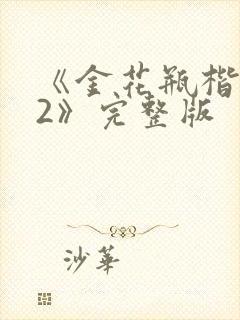 《金花瓶楷
2》完整版
沙華